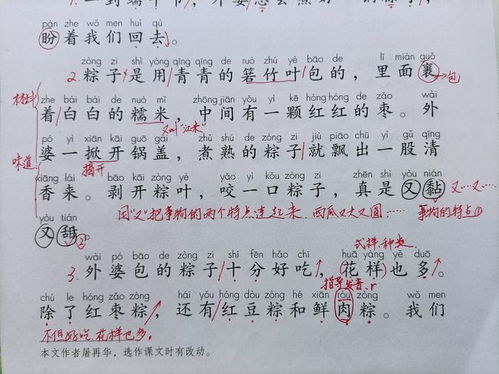 pàn zhe wǒ men huí qù
盼着我们回去。
zòng zi shì yòng qīng qīng de ruò zhú yè bāo de lǐ miàn guǒ
2.粽子是用青青的箬竹叶包的，里面裹 包
zhe bái bái de nuò mǐ zhōng jiān yǒu yì kē hóng hóng de zǎo wài
着白白的糯米，中间有一颗红红的枣。外
又叫“江米”
pó yì xiān kāi guō gài zhǔ shú de zòng zi jiù piāo chū yì gǔ qīng
味道 婆一掀开锅盖，煮熟的粽子就飘出一股清
揭开
xiāng lái bāo kāi zòng yè yǎo yì kǒu zòng zi zhēn shì yòu nián
香来。剥开粽叶，咬一口粽子，真是又黏 又…又…
yòu tián
又甜。② 用“又”把事物的两个特点连起来 西瓜又大又圆 事物的特点①
式样、种类
wài pó bāo de zòng zi shí fēn hǎo chī huā yàng yě duō
3.外婆包的粽子十分好吃，花样也多。
chú le hóng zǎo zòng hái yǒu hóng dòu zòng hé xiān ròu zòng wǒ men
除了红枣粽，还有红豆粽和鲜肉粽。我们
不但好吃，花样也多。
本文作者屠再华，选作课文时有改动。